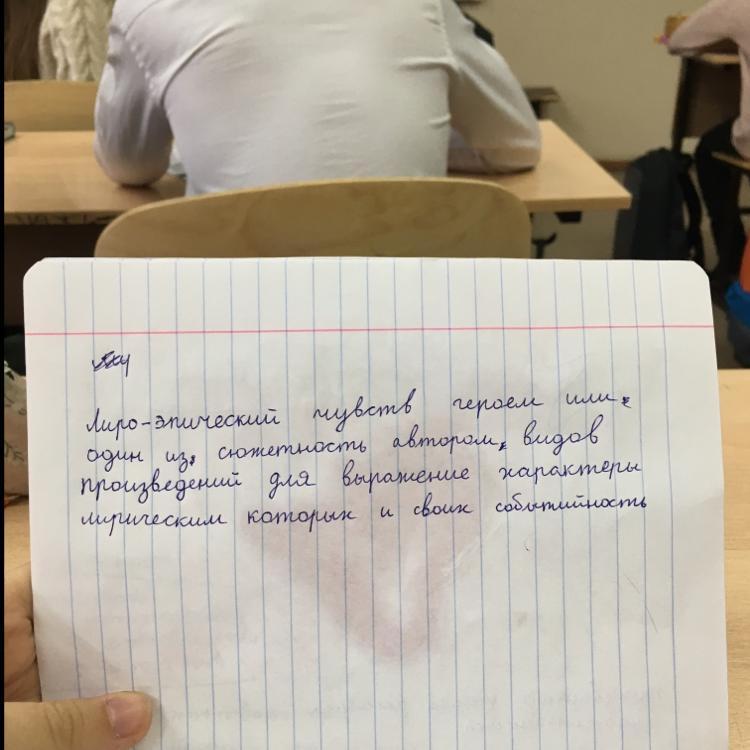 Лиро-эпический чувств героем или,
один из, сюжетность автором, видов
произведений для выражение характеры
лирическим которых и своих событийность